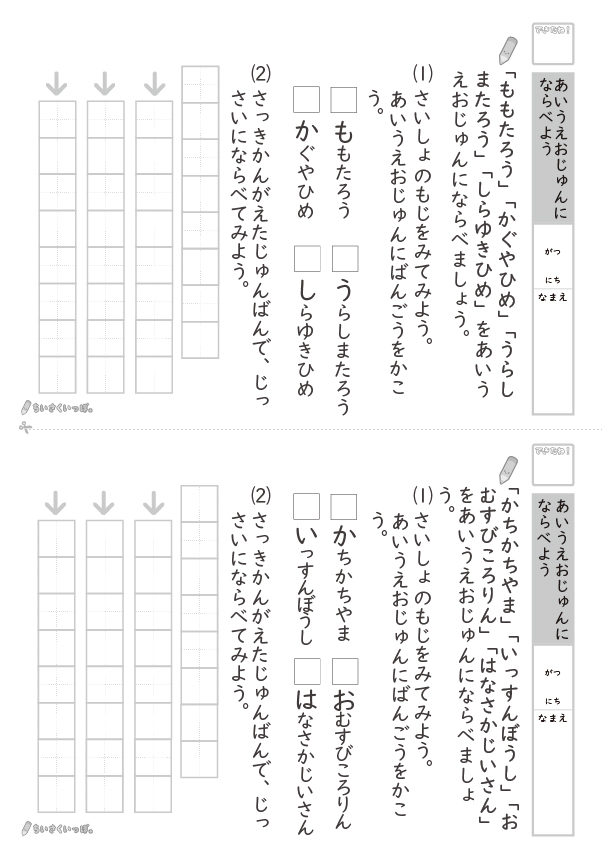 できたね!
あいうえおじゅんに
ならべよう
がつ
にち
なまえ
「ももたろう」「かぐやひめ」「うらし
またろう」「しらゆきひめ」をあいう
えおじゅんにならべましょう。
(1) さいしょのもじをみてみよう。
あいうえおじゅんにばんごうをかこ
う。
ももたろう
うらしまたろう
かぐやひめ
しらゆきひめ
(2) さっきかんがえたじゅんばんで、じっ
さいにならべてみよう。
ちいさくいっぽ。
できたね!
あいうえおじゅんに
ならべよう
がつ
にち
なまえ
「かちかちやま」「いっすんぼうし」「お
むすびころりん」「はなさかじいさん」
をあいうえおじゅんにならべましょ
う。
(1) さいしょのもじをみてみよう。
あいうえおじゅんにばんごうをかこ
う。
かちかちやま
おむすびころりん
いっすんぼうし
はなさかじいさん
(2) さっきかんがえたじゅんばんで、じっ
さいにならべてみよう。
ちいさくいっぽ。